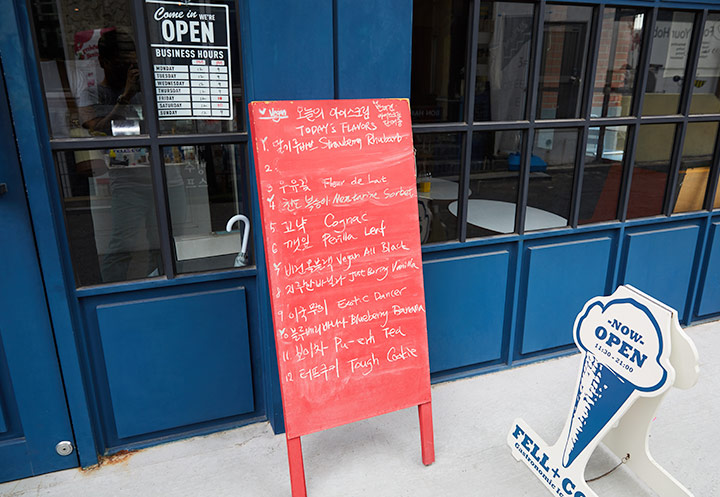 Come in WE'RE
OPEN
BUSINESS HOURS
MONDAY
TUESDAY
WEDNESDAY
THURSDAY
FRIDAY
SATURDAY
SUNDAY
Vegan
오늘의 아이스크림
TODAY'S FLAVORS
1. 딸기루바브 Strawberry Rhubarb
2.
3. 우유꽃 Fleur de Lait
4. 천도복숭아 Nectarine Sorbet
5 꼬냑 Cognac
6 깻잎 Perilla Leaf
7 비건올블랙 Vegan All Black
8 지루한바닐라 Just Boring Vanilla
9 이국적 Exotic Dancer
10 블루베리바나나 Blueberry Banana
11 보이차 Pu-erh Tea
12 터프쿠키 Tough Cookie
-NOW-
OPEN
11:30 - 21:00
FELL+CO
Gastronomic